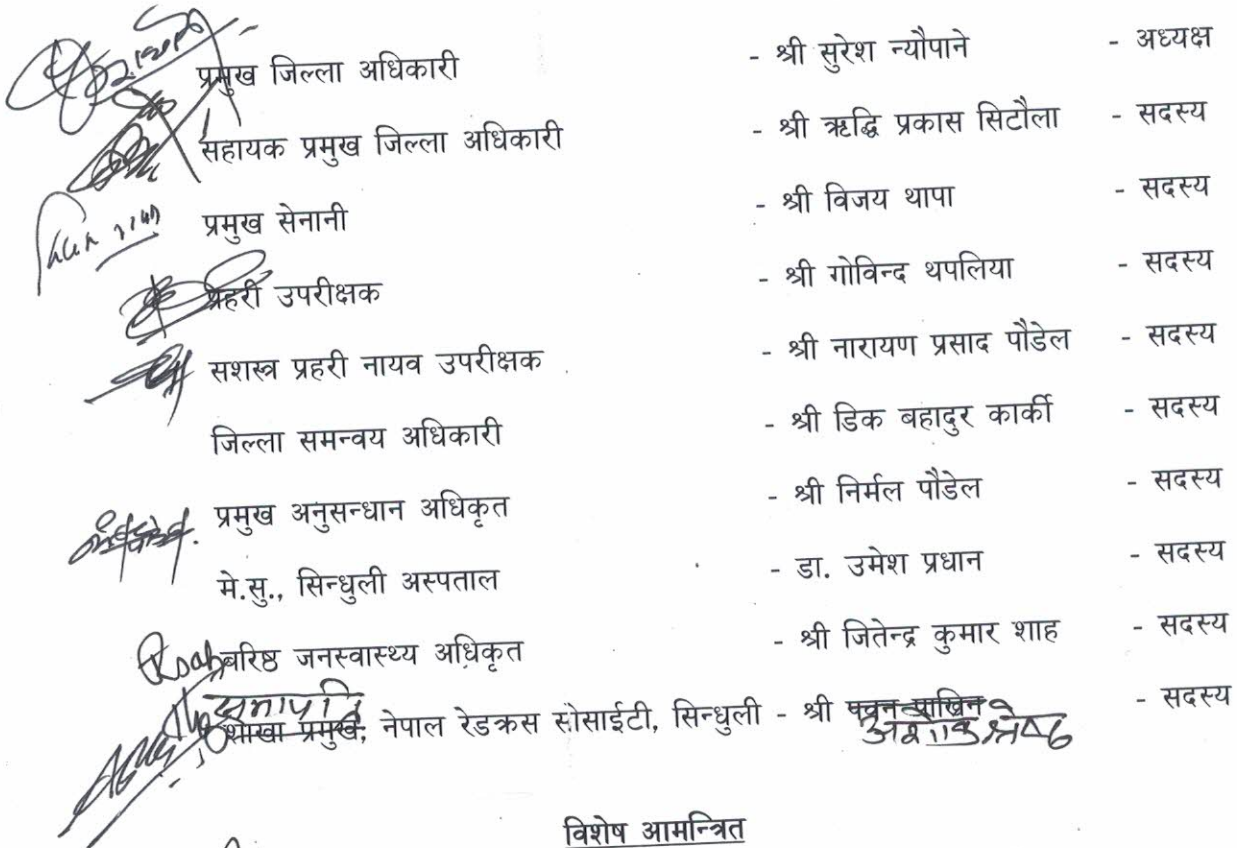 प्रमुख जिल्ला अधिकारी - श्री सुरेश न्यौपाने - अध्यक्ष
सहायक प्रमुख जिल्ला अधिकारी - श्री ऋद्धि प्रकास सिटौला - सदस्य
प्रमुख सेनानी - श्री विजय थापा - सदस्य
प्रहरी उपरीक्षक - श्री गोविन्द थपलिया - सदस्य
सशस्त्र प्रहरी नायव उपरीक्षक - श्री नारायण प्रसाद पौडेल - सदस्य
जिल्ला समन्वय अधिकारी - श्री डिक बहादुर कार्की - सदस्य
प्रमुख अनुसन्धान अधिकृत - श्री निर्मल पौडेल - सदस्य
मे.सु., सिन्धुली अस्पताल - डा. उमेश प्रधान - सदस्य
बरिष्ठ जनस्वास्थ्य अधिकृत - श्री जितेन्द्र कुमार शाह - सदस्य
सभापति
शाखा प्रमुख, नेपाल रेडक्रस सोसाईटी, सिन्धुली - श्री - सदस्य
अशोक श्रेष्ठ
विशेष आमन्त्रित